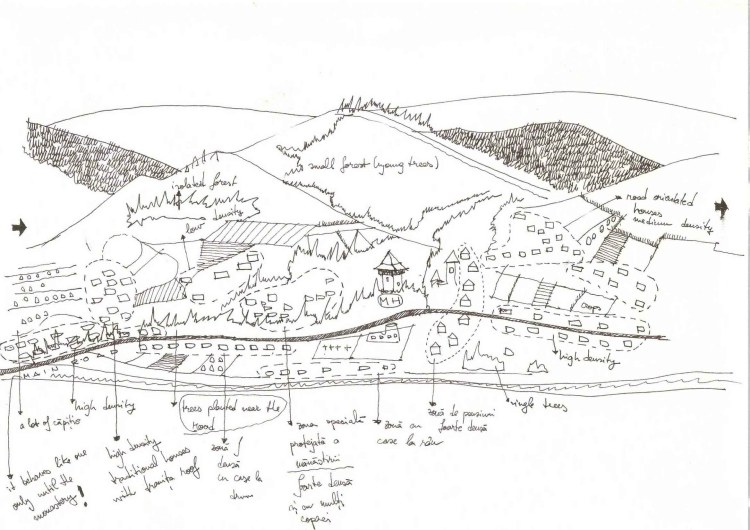 small forest (young trees)
isolated forest
low
density
road oriented
houses
medium density
MH
crops
MAIN ROAD
high density
single trees
a lot of căpițe
high density
trees planted near the
road
it behaves like one
only until the
monastery!
high density
traditional houses
with
roof
zonă f
densă
cu case la
drum
zona specială
protejată a
mănăstirii
foarte densă
și cu mulți
copaci
zonă cu
case la râu
zonă de pensiuni
foarte densă